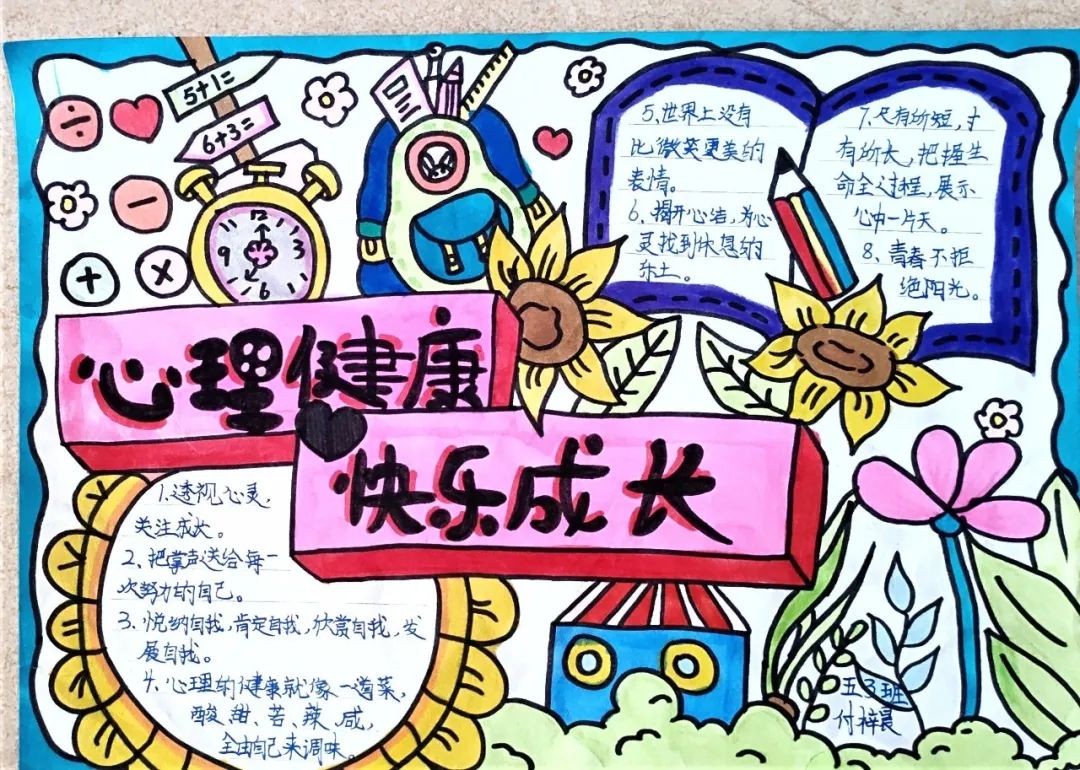 5+1=
6+3=
÷
-
+
×
12
3
6
9
心理健康
快乐成长
1.透视心灵,
关注成长。
2.把掌声送给每一
次努力的自己。
3.悦纳自我,肯定自我,欣赏自我,发
展自我。
4.心理的健康就像一道菜,
酸、甜、苦、辣、咸,
全由自己来调味。
5.世界上没有
比微笑更美的
表情。
6.揭开心结,为心
灵找到休憩的
乐土。
7.尺有所短,寸
有所长,把握生
命全过程,展示
心中一片天。
8、青春不拒
绝阳光。
五3班
付梓晨